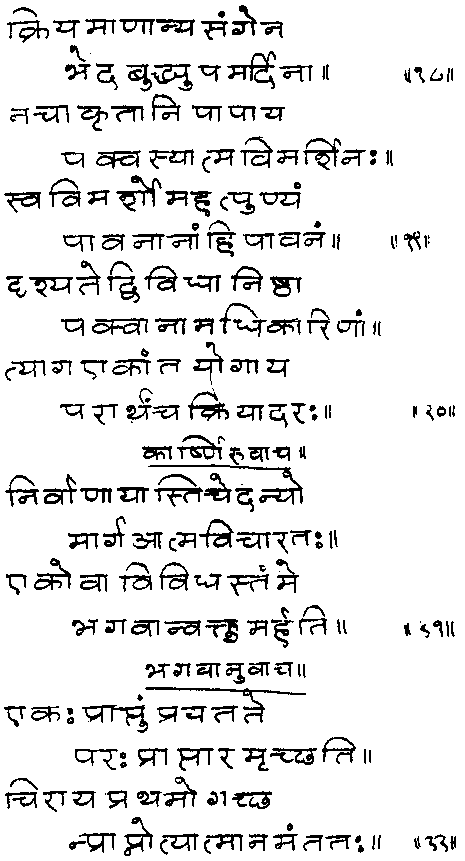 क्रियमाणान्यसंगेन
भेदबुद्ध्युपमर्दिना॥ ॥१८॥
नचाकृतानि पापाय
पक्वस्यात्मविमर्शिनः॥
स्वविमर्शो महत्पुण्यं
पावनानां हि पावनं॥ ॥१९॥
दृश्यते द्विविधा निष्ठा
पक्वानामधिकारिणां॥
त्याग एकांतयोगाय
परार्थंच क्रियादरः॥ ॥२०॥
कार्ष्णिरुवाच॥
निर्वाणायास्ति चेदन्यो
मार्ग आत्मविचारतः॥
एकोवा विविधस्तं मे
भगवान्वक्तुमर्हति॥ ॥२१॥
भगवानुवाच॥
एकः प्राप्तुं प्रयतते
परः प्राप्तारमृच्छति॥
चिराय प्रथमो गच्छ
न्प्राप्नोत्यात्मानमंततः॥ ॥२२॥